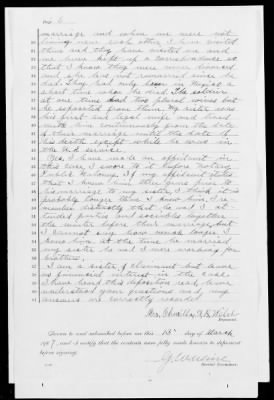 marriage and when we were not
living near each other I have visited
there and they have visited me and
we have kept up a correspondence so
that I know they were never divorced
and she has not remarried since he
died. They had only been in Mexico a
short time when he died. The soldier
at one time had two plural wives but
he separated from them. My sister was
his first and legal wife and lived
with him continuously from the date
of their marriage until the date of
his death except while he was in
the U.S. service.
Yes, I have made an affidavit in
this case, I swore to it before Notary
Public. If my affidavit states
that I knew him three years prior to
his marriage to my sister, I think it is
probably longer than I knew him. I re-
member distinctly that he and I at-
tended parties and sociables together
the winter before their marriage, but
I cannot say how much longer I
knew him. At the time he married
my sister he and I were working for
brothers.
I am a sister of claimant but have
no financial interest in the case.
I have heard this deposition read, have
understood your questions and my
answers are correctly recorded.
Mrs.
Deponent.
Sworn to and subscribed before me this 13" day of March
1907, and I certify that the contents were fully made known to deponent
before signing.
Special Examiner.